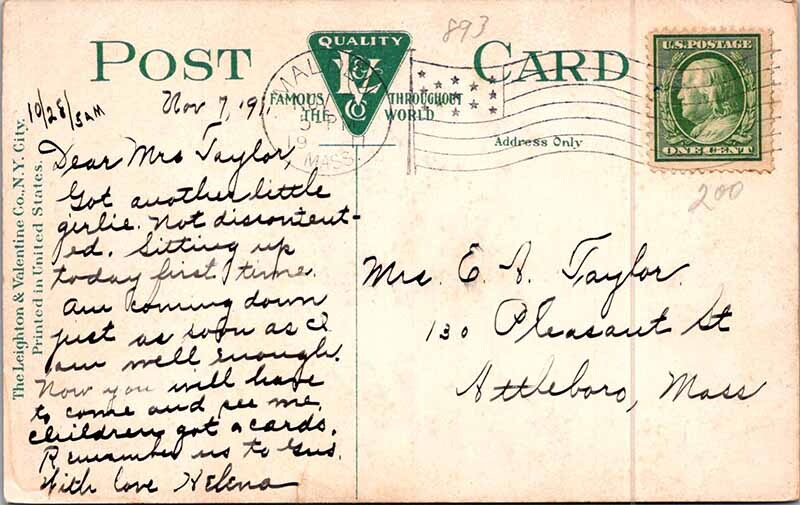 893
POST CARD
QUALITY
L&V
Co
FAMOUS THROUGHOUT
THE WORLD
MASS.
U.S. POSTAGE
ONE CENT
Address Only
200
10/28/5AM
Nov 7, 1911
The Leighton & Valentine Co., N.Y. City.
Printed in United States.
Dear Mrs Taylor,
Got another little
girlie. Not discontent-
ed. Sitting up
today first time.
Am coming down
just as soon as I
am well enough.
Now you will have
to come and see me.
Children got a cards.
Remember us to Gus.
With love Helena
Mrs. E. A. Taylor
130 Pleasant St
Attleboro, Mass